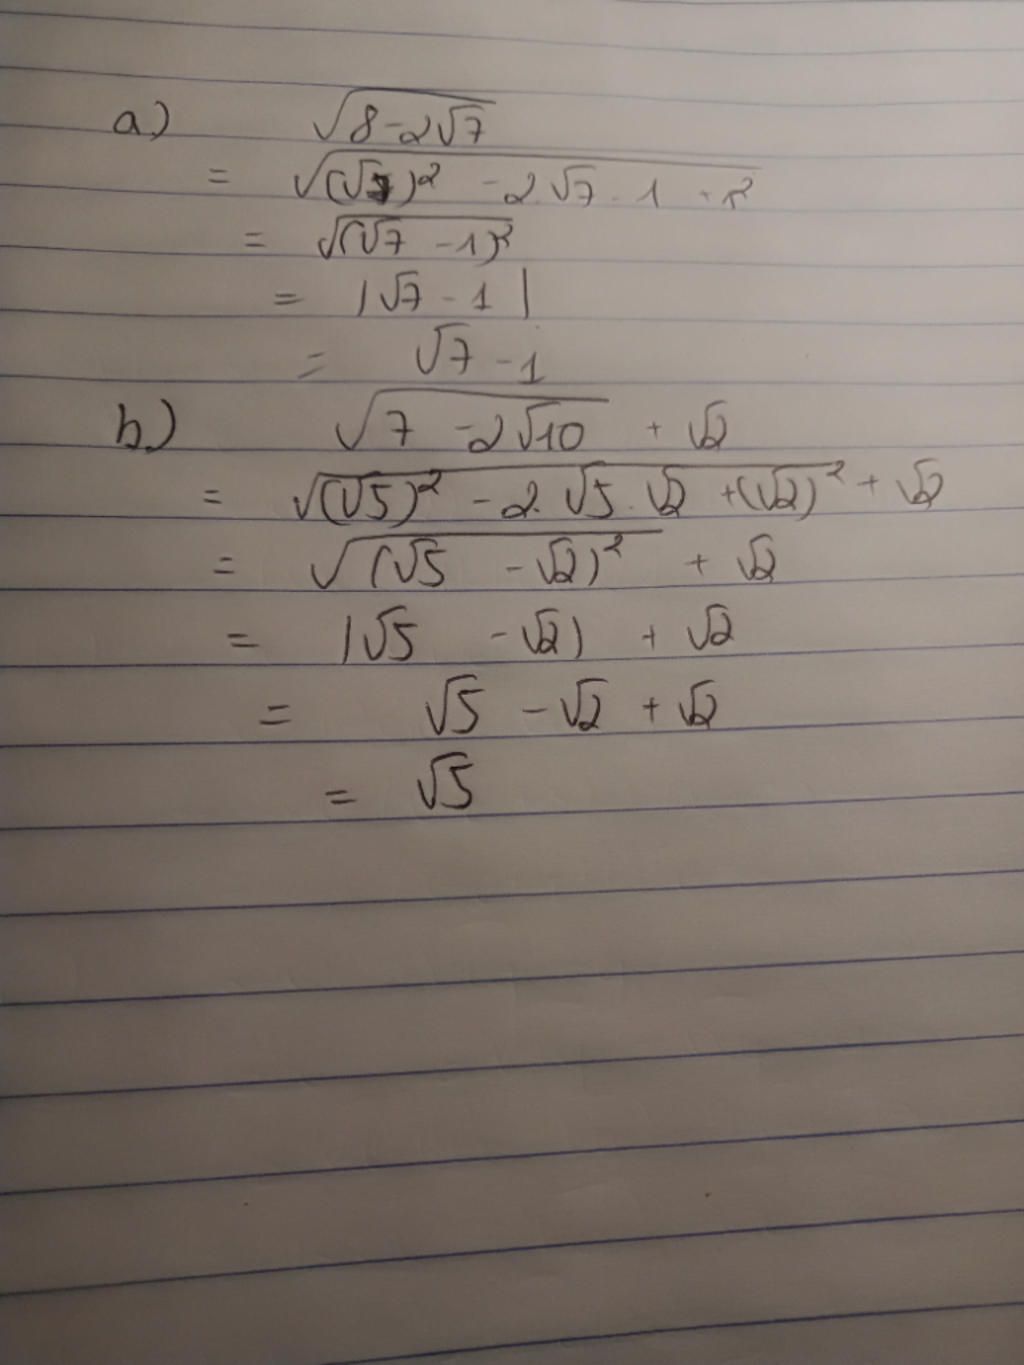 a) √(8-2√7)
= √((√7)² - 2.√7 . 1 + 1²)
= √((√7 - 1)²)
= |√7 - 1|
= √7 - 1
b) √(7 - 2√10) + √2
= √((√5)² - 2.√5.√2 + (√2)²) + √2
= √((√5 - √2)²) + √2
= |√5 - √2| + √2
= √5 - √2 + √2
= √5